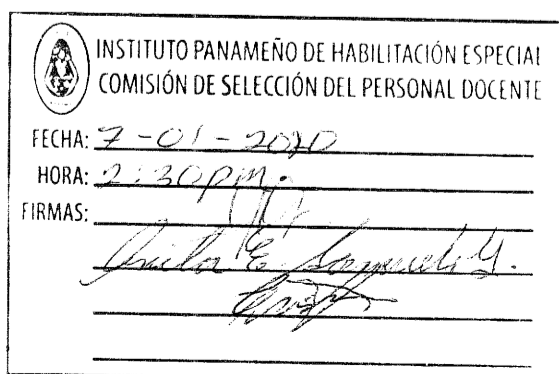 INSTITUTO PANAMEÑO DE HABILITACIÓN ESPECIAL
COMISIÓN DE SELECCIÓN DEL PERSONAL DOCENTE
FECHA: 7-01-2020
HORA: 2:30pm.
FIRMAS:
E.